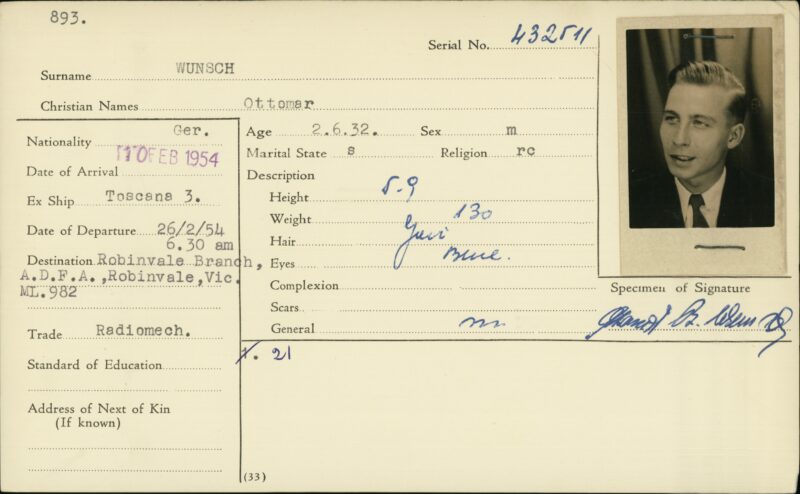 893.
Serial No. 432511
Surname WUNSCH
Christian Names Ottomar
Nationality Ger.
Age 2.6.32. Sex m
Date of Arrival 10 FEB 1954
Marital State s Religion rc
Ex Ship Toscana 3.
Description
Height 5-9
Date of Departure 26/2/54
6.30 am
Weight 130
Hair
Destination Robinvale Branch,
A.D.F.A.,Robinvale,Vic.
ML.982
Eyes Blue.
Complexion
Scars
Trade Radiomech.
General
Specimen of Signature
Standard of Education
21
Address of Next of Kin
(If known)
(33)